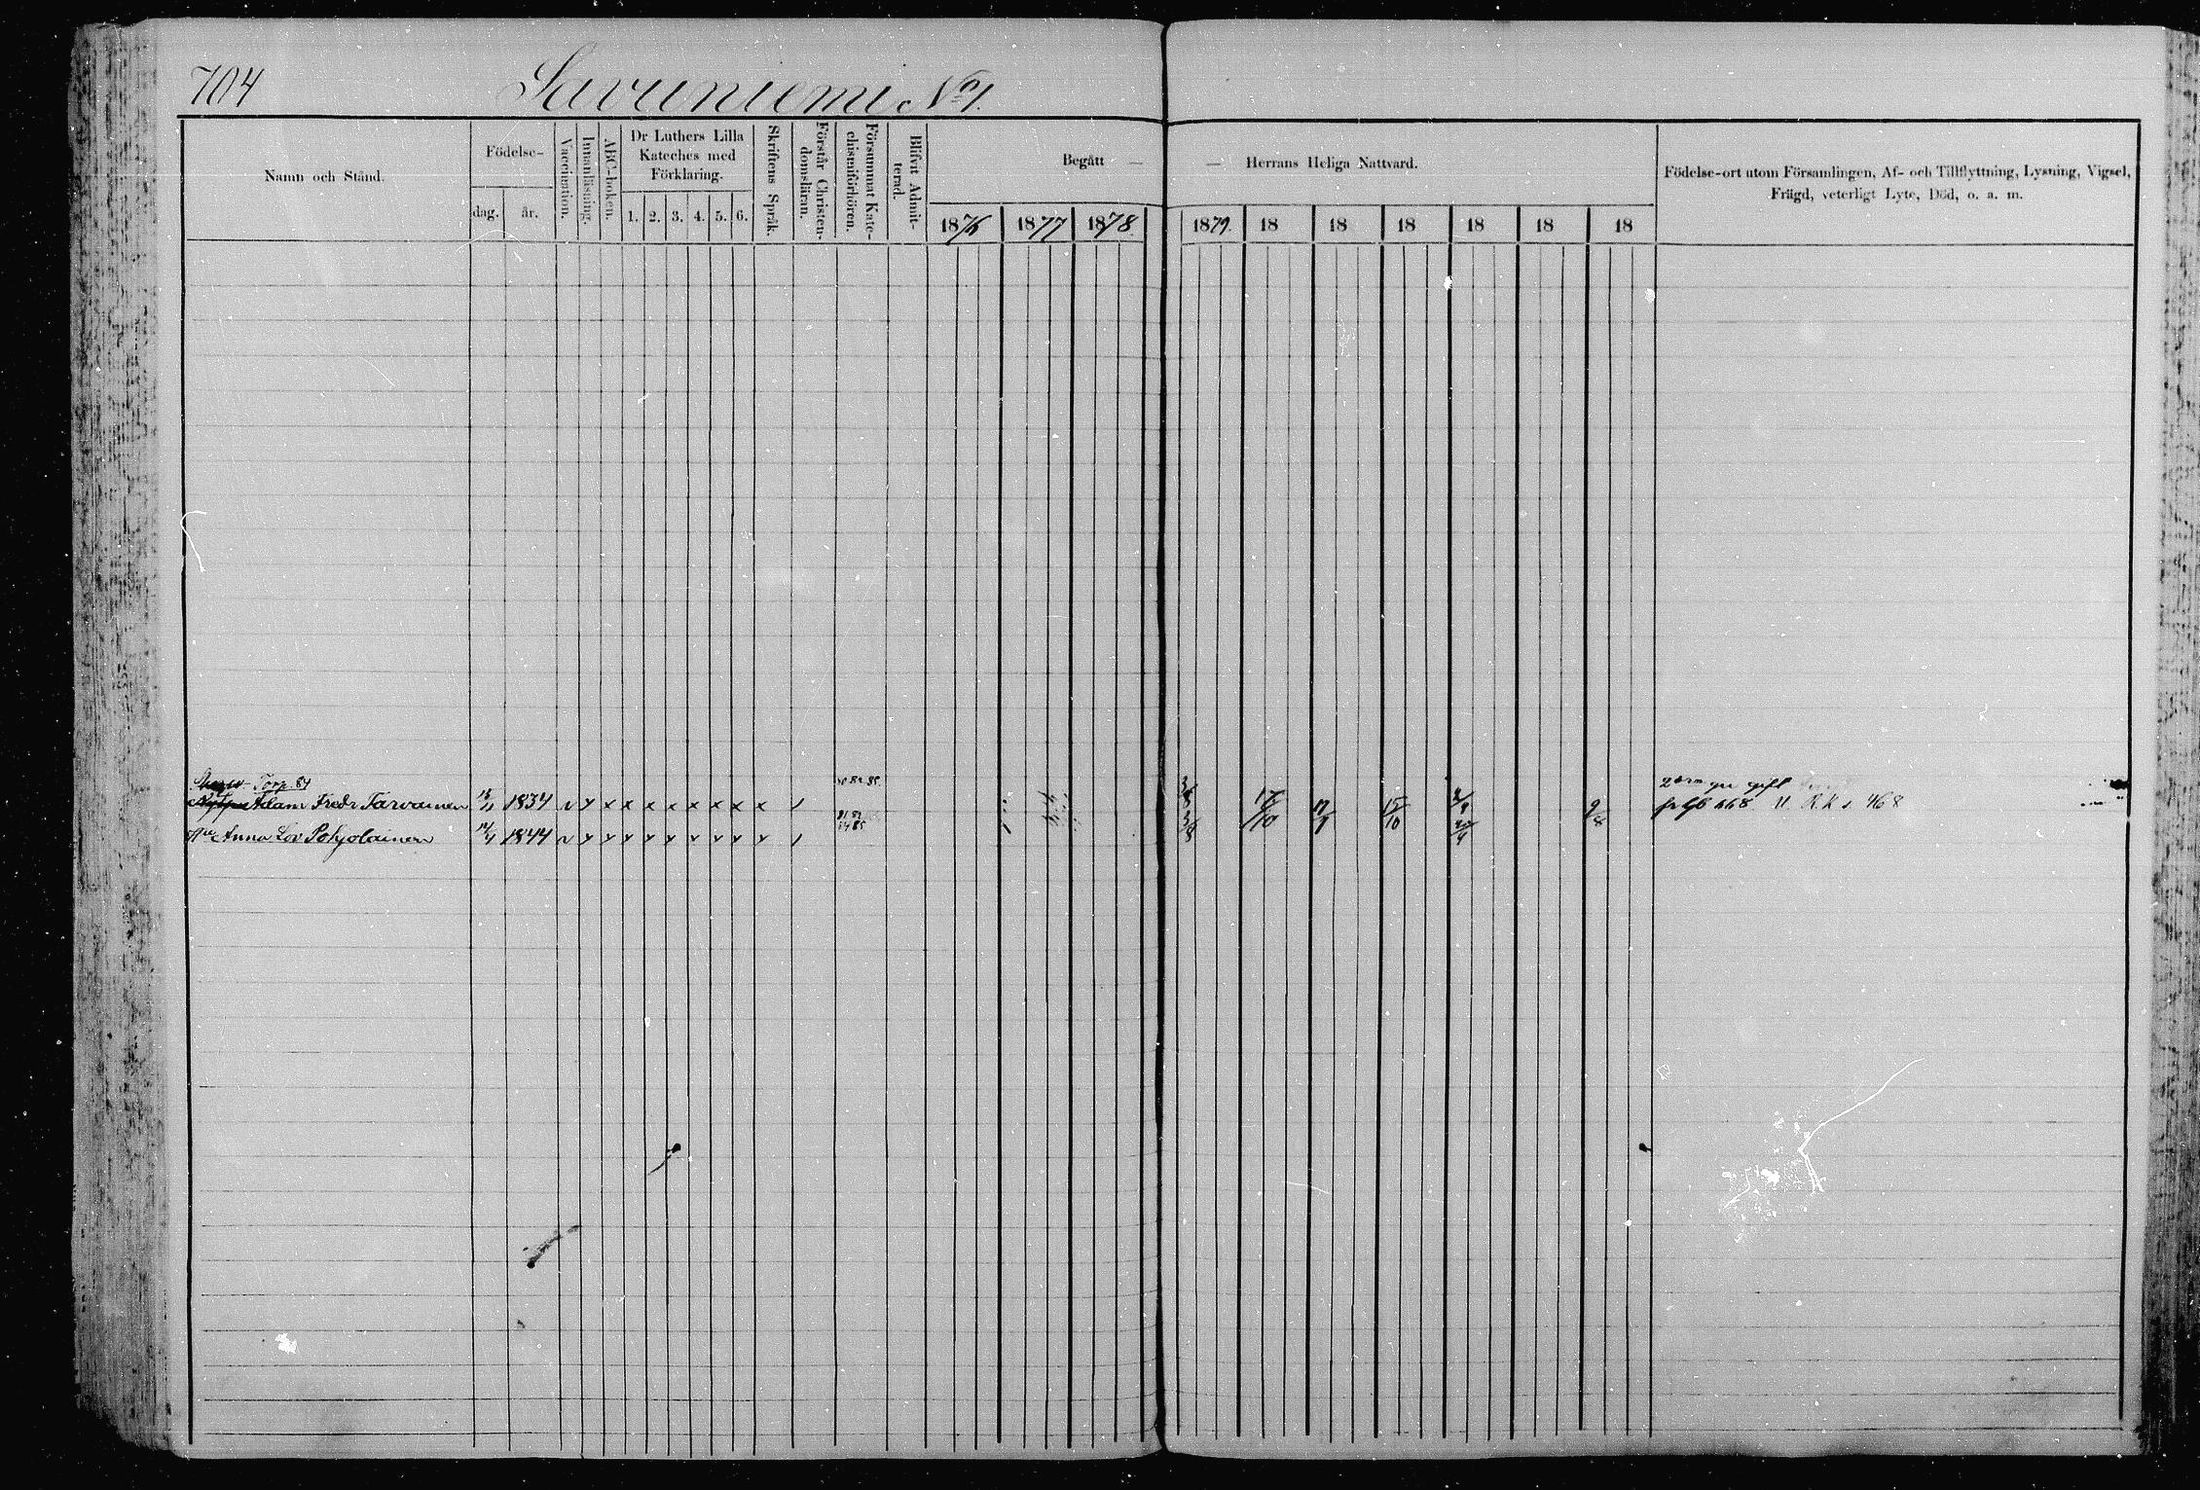 704 Savuniemi No 1.
Namn och Stånd.
Födelse-
dag. år.
Vaccination.
Innanläsning.
ABC-boken.
Dr Luthers Lilla
Kateches med
Förklaring.
1. 2. 3. 4. 5. 6.
Skriftens Språk.
Förstår Christen-
domsläran.
Försummat Kate-
chismiförhören.
Blifvit Admit-
terad.
Begått — — Herrans Heliga Nattvard.
1876 1877 1878 1879 18 18 18 18 18 18
Födelse-ort utom Församlingen, Af- och Tillflyttning, Lysning, Vigsel,
Frägd, veterligt Lyte, Död, o. a. m.
Torp. 84
Adam Fredr Tarvainen 1834 v y x x x x x x x x 17/10 15/10 9/8 668 U. R.k s 468
Anna Lov Pohjolainen 1844 v y y y y y v y y y 3/8